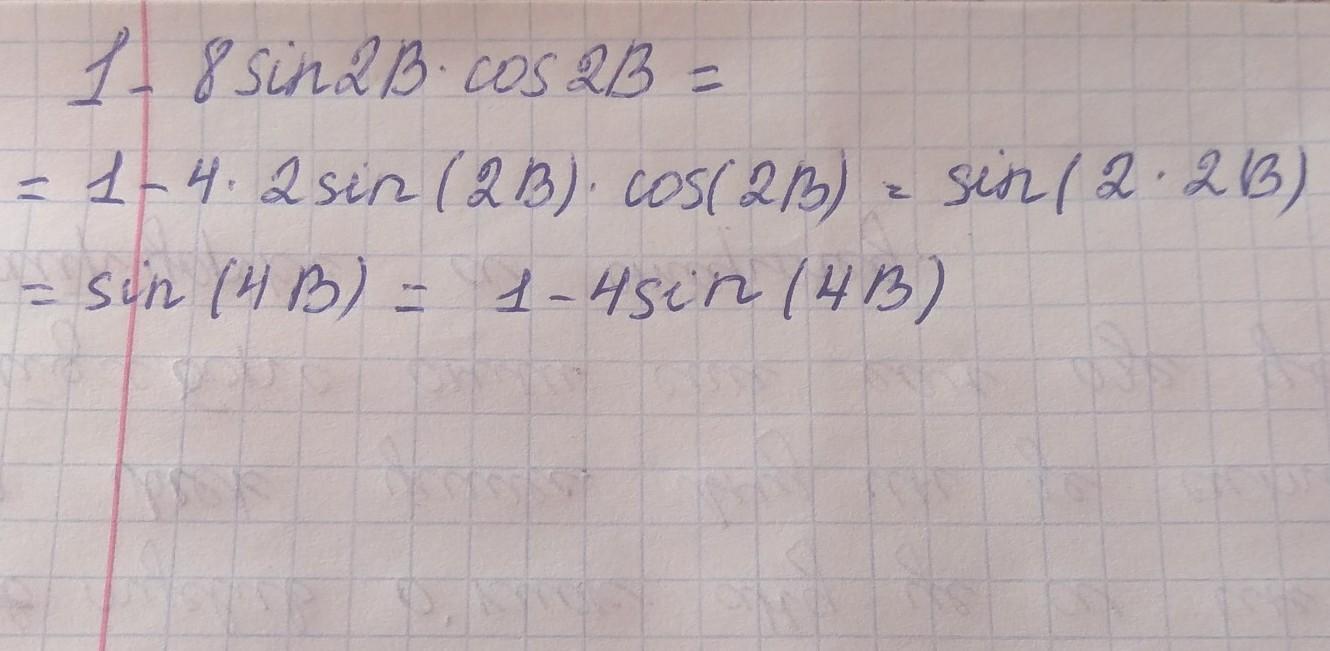 1 - 8 sin2B · cos 2B =
= 1 - 4 · 2 sin (2B) · cos(2B) = sin (2 · 2B)
= sin (4B) = 1 - 4 sin (4B)